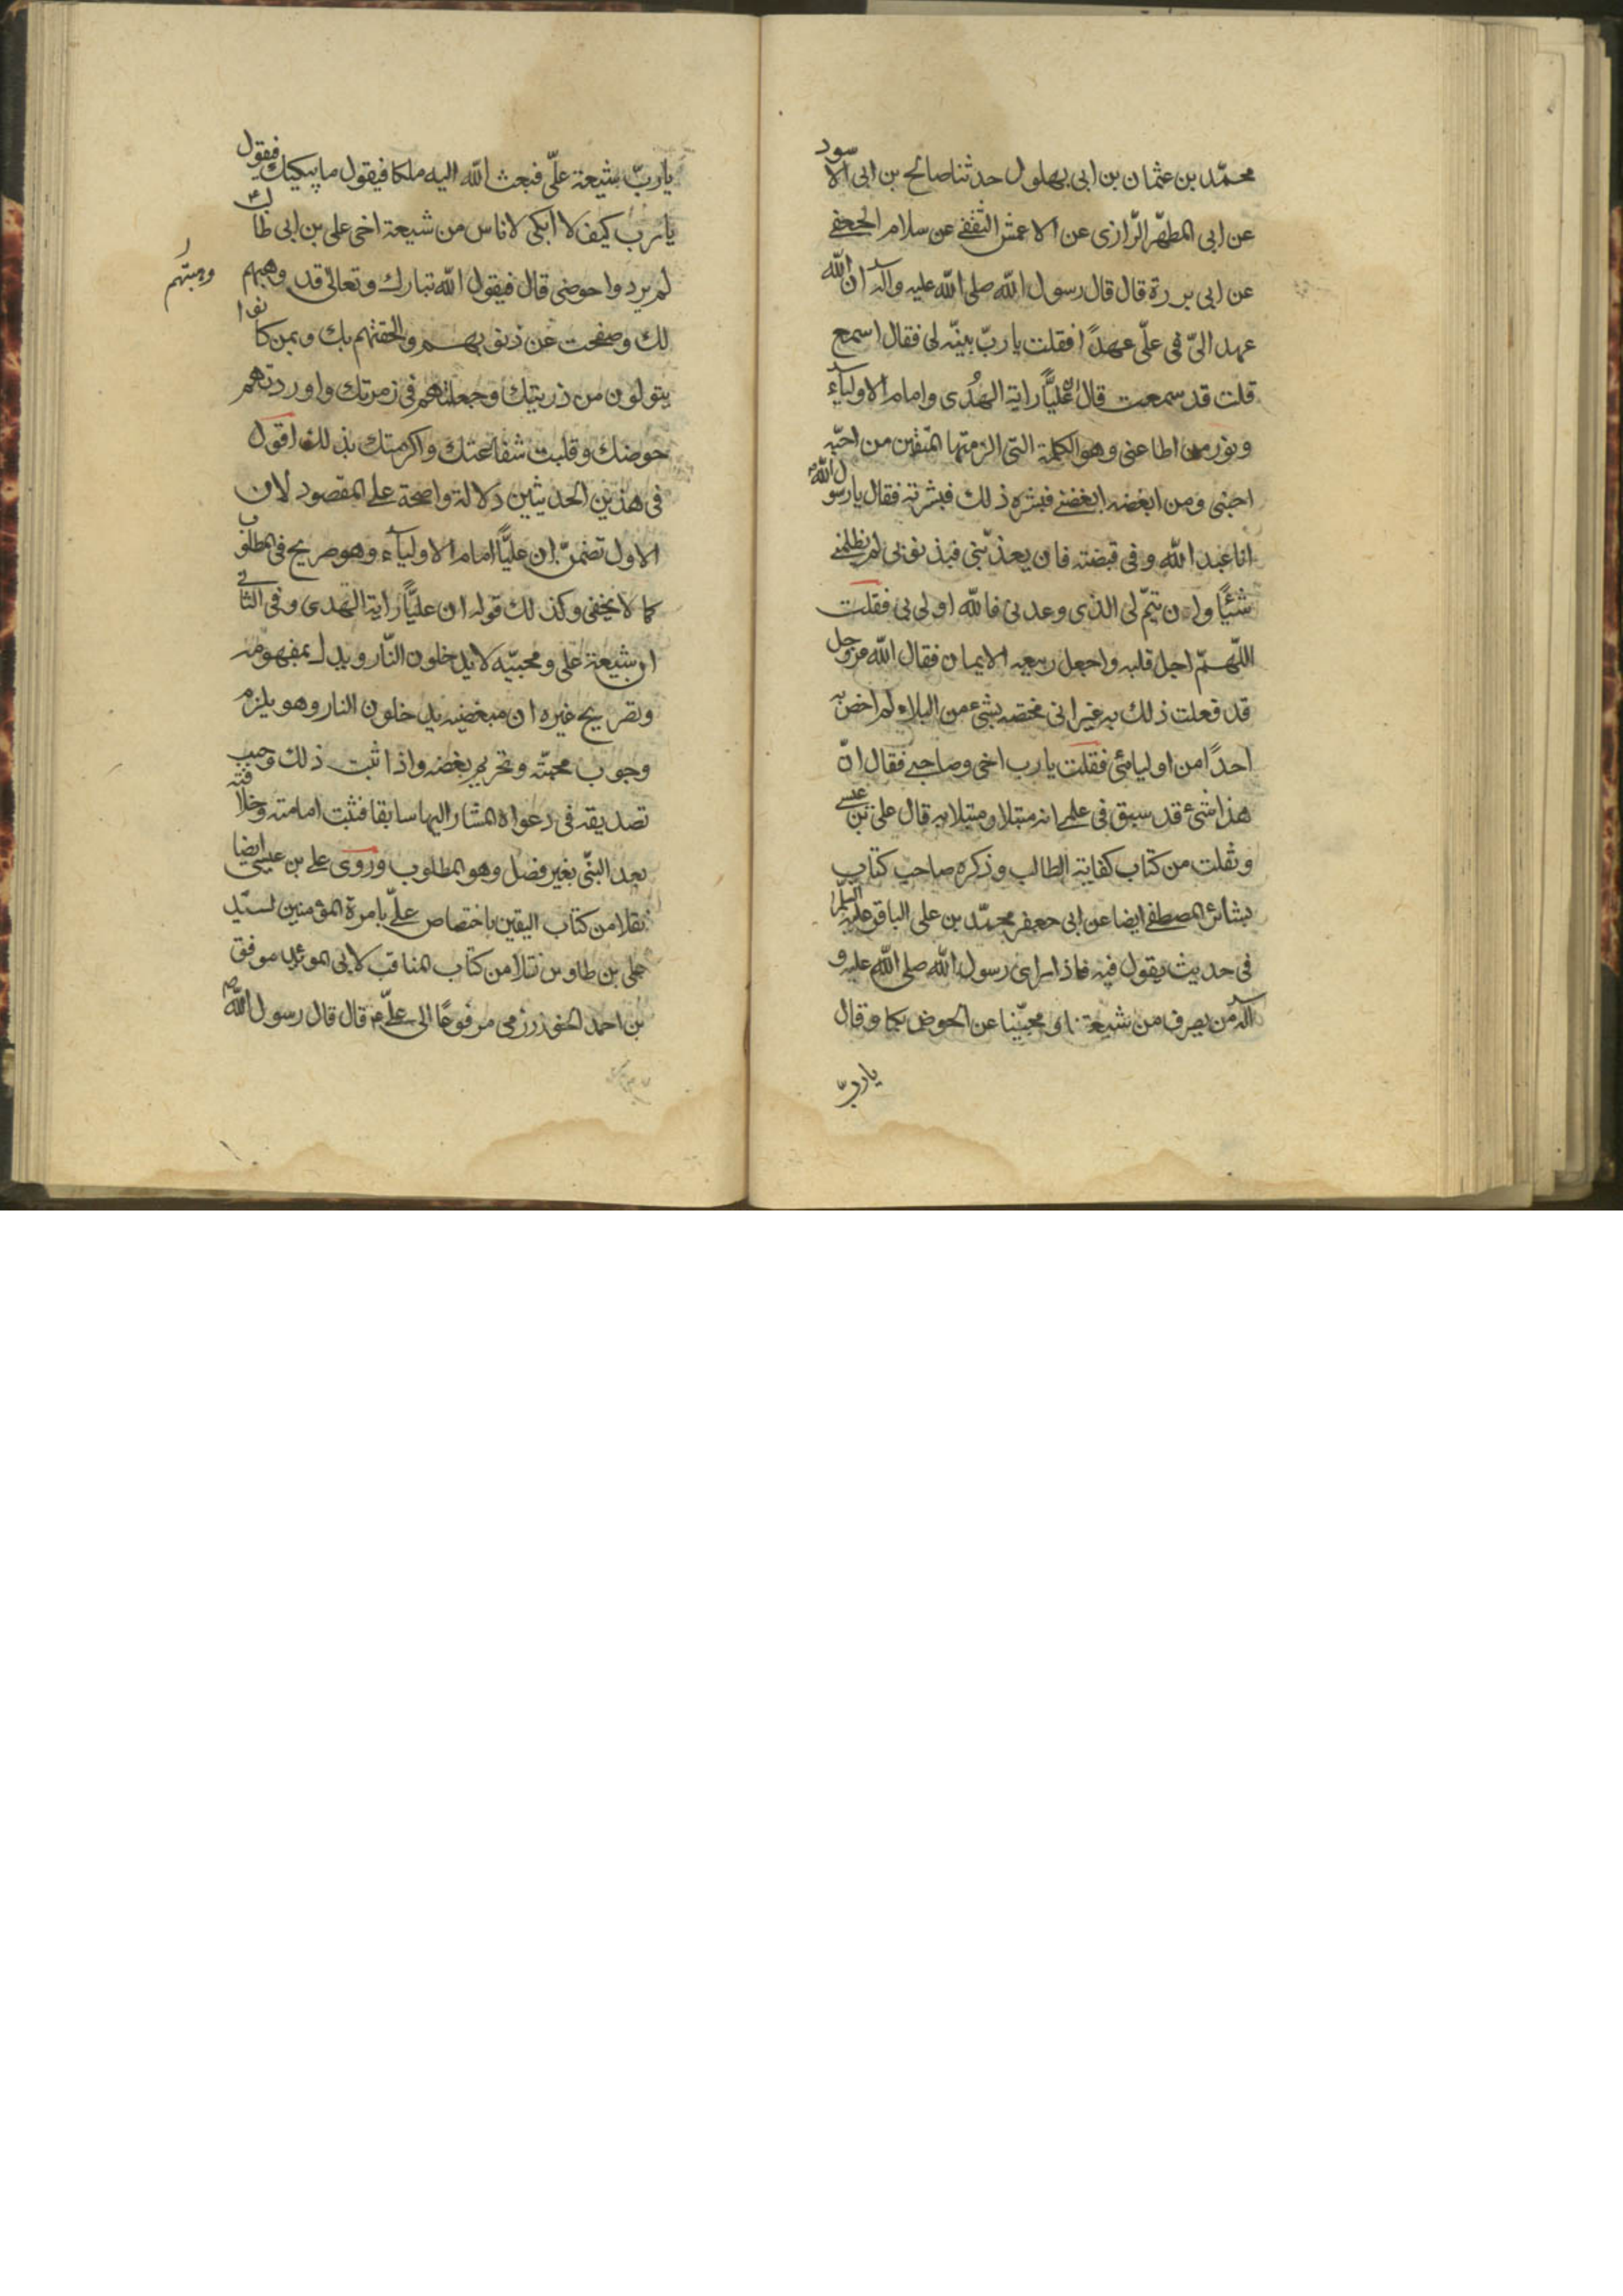 محمّد بن عثمان بن ابى بهلول حدثنا صالح بن ابى الاسود
عن ابى المطهّر الرّازى عن الاعمش الثقفے عن سلام الجعفے
عن ابى برزة قال قال رسول الله صلى الله عليه وآله ان الله
عهد الىّ فى علىّ عهدًا فقلت يا ربّ بينّه لى فقال اسمع
قلت قد سمعت قال ان عليًّا راية الهُدى وامام الاولياء
ونور من اطاعنى وهو الكلمة التى الزمتها المتقين من احبّه
احبنى ومن ابغضه ابغضنے فبشره ذلك فبشرته فقال يا رسول الله
انا عبد الله وفى قبضته فان يعذّبنى فبذنوبى لم يظلمنے
شئيًا وان يتمّ لى الذى وعدنى فالله اولى بى فقلت
اللّهمّ اجل قلبه واجعل ربيعه الايمان فقال الله عزوجل
قد فعلت ذلك به غير انى مختصه بشىء من البلاء لم اخصّ به
احدًا من اوليائى فقلت يا رب اخى وصاحبے فقال انّ
هذا شىء قد سبق فى علمے انه مبتلا ومبتلا به قال على بن عيسے
ونقلت من كتاب كفاية الطالب وذكره صاحب كتاب
بشائر المصطفے ايضا عن ابى جعفر محمّد بن على الباقر عليه السلم
فى حديث يقول فيه فاذا راى رسول الله صلى الله عليه و
آله من يصرف من شيعتنا و محبّينا عن الحوض بكا وقال
يا ربّ
يا ربّ شيعة علىّ فبعث الله اليه ملكا فيقول ما يبكيك فيقول
يا رب كيف لا ابكى لاناس من شيعة اخى على بن ابى طالب
لم يردوا حوضى قال فيقول الله تبارك وتعالى قد وهبهم
وهبتهم
لك وصفحت عن ذنوبهم والحقتهم بك وبمن كانوا
يتولون من ذريتك وجعلتهم فى زمرتك واوردتهم
حوضك وقلبت شفاعتك واكرمتك بذلك اقول
فى هذين الحديثين دلالة واضحة على المقصود لان
الاول تضمنّ ان عليًّا امام الاولياء وهو صريح فى المطلوب
كما لا يخفى وكذلك قوله ان عليًّا راية الهدى وفى الثانے
ان شيعة على ومحبيّه لا يدخلون النّار ويدل بمفهومه
وتصريح غيره ان مبغضيه يدخلون النار وهو يلزم
وجوب محبتّه وتحريم بغضه واذا ثبت ذلك وجب
تصديقه فى دعواه المشار اليها سابقا فثبت امامته وخلافته
بعد النبّى بغير فصل وهو المطلوب وروى على بن عيسى ايضا
نقلا من كتاب اليقين باختصاص علىّ بامرة المؤمنين لسيّد
على بن طاوس نقلا من كتاب المناقب لابى المويد موفق
بن احمد الخوارزمى مرفوعًا الى علىّ قال قال رسول الله